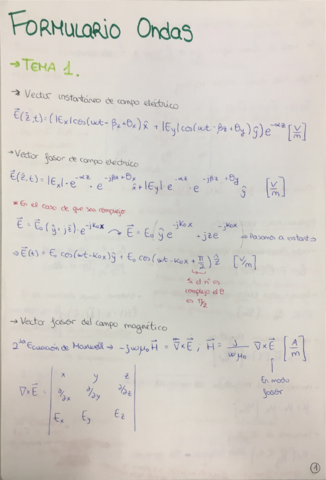 FORMULARIO ONDAS
→ TEMA 1.
→ Vector instantáneo de campo eléctrico
E⃗(z,t) = (|Ex| cos(wt - βz + θx) x̂ + |Ey| cos(wt - βz + θy) ŷ) e^-αz [V/m]
→ Vector fasor de campo electrico
E⃗(z,t) = |Ex| · e^-αz · e^-jβz+θx x̂ + |Ey| · e^-αz · e^-jβz+θy ŷ [V/m]
* En el caso de que sea complejo
E⃗ = E⃗o (ŷ + jẑ) · e^-jkox → E⃗ = Eo ŷ e^-jkox + jẑ e^-jkox → Pasamos a instantá
⇒ E⃗(t) = Eo cos(wt - kox) ŷ + Eo cos(wt - kox + π/2) ẑ [V/m]
Si el nº es
complejo el θ
es π/2
→ Vector fasor del campo magnético
2ª Ecuación de Maxwell → -jwμo H⃗ = ∇⃗ x E⃗ , H⃗ = j/wμo ∇ x E⃗ [A/m]
En modo
fasor
x y z
∇ x E⃗ = ∂/∂x ∂/∂y ∂/∂z
Ex Ey Ez
1